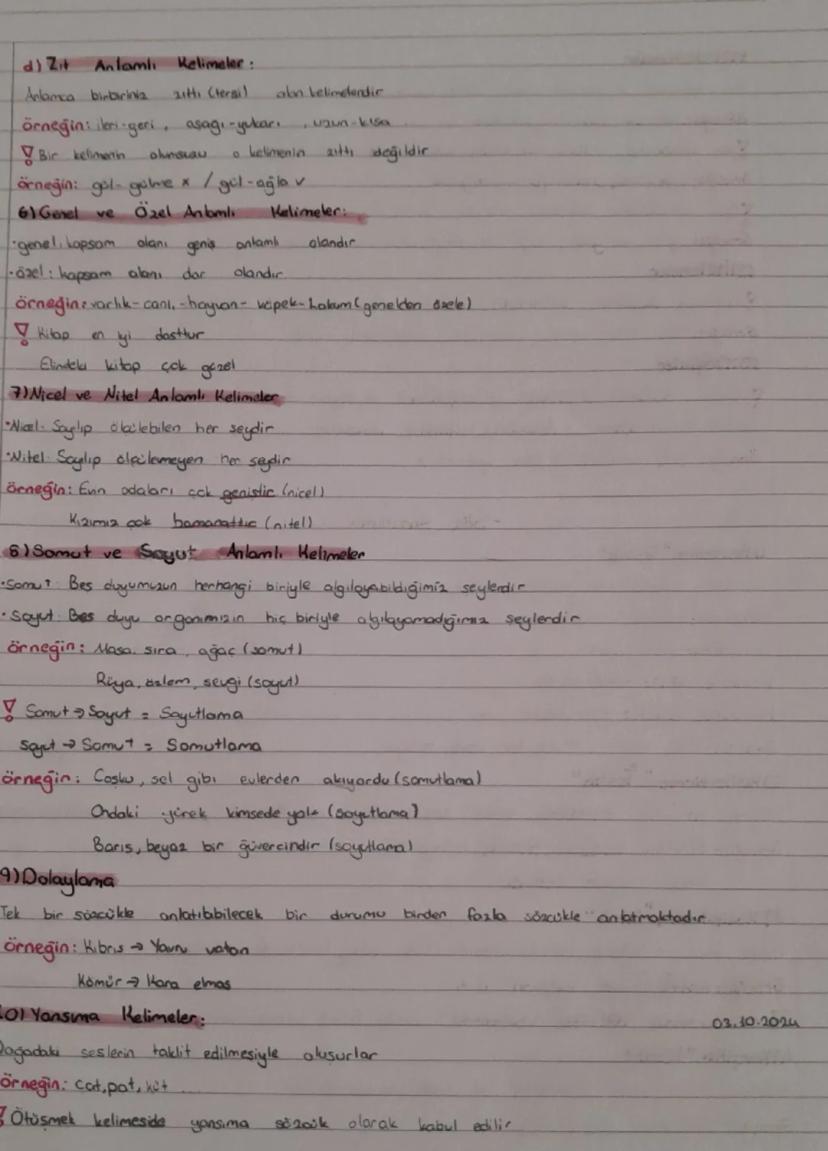 d) Zıt Anlamlı Kelimeler:
Anlamca birbirinin zıttı (tersi) olan kelimelerdir
örneğin: ileri-geri, aşağı-yukarı, uzun-kısa
! Bir kelimenin olumsuzu o kelimenin zıttı değildir
örneğin: gül-gülme x / gül-ağla v
6) Genel ve Özel Anlamlı Kelimeler:
·genel: kapsam alanı geniş anlamlı olandır
·özel: kapsam alanı dar olandır
örneğin: varlık-canlı-hayvan-köpek- (genelden özele)
! Kitap en iyi dosttur
Elindeki kitap çok güzel
7) Nicel ve Nitel Anlamlı Kelimeler
·Nicel: Sayılıp ölçülebilen her şeydir
·Nitel: Sayılıp ölçülemeyen her şeydir
örneğin: Evin odaları çok geniştir (nicel)
Kızımız çok hamarattır (nitel)
8) Somut ve Soyut Anlamlı Kelimeler
·Somut: Beş duyumuzun herhangi biriyle algılayabildiğimiz şeylerdir
·Soyut: Beş duyu organımızın hiç biriyle algılayamadığımız şeylerdir
örneğin: Masa, sıra, ağaç (somut)
Rüya, özlem, sevgi (soyut)
! Somut → Soyut = Soyutlama
Soyut → Somut = Somutlama
örneğin: Coşku, sel gibi evlerden akıyordu (somutlama)
Ondaki yürek kimsede yok (soyutlama)
Barış, beyaz bir güvercindir (soyutlama)
9) Dolaylama
Tek bir sözcükle anlatılabilecek bir durumu birden fazla sözcükle anlatmaktadır
örneğin: Kıbrıs → Yavru vatan
Kömür → Kara elmas
10) Yansıma Kelimeler: 03.10.2024
Doğadaki seslerin taklit edilmesiyle oluşurlar
örneğin: çat, pat, küt
! Ötüşmek kelimeside yansıma sözcük olarak kabul edilir